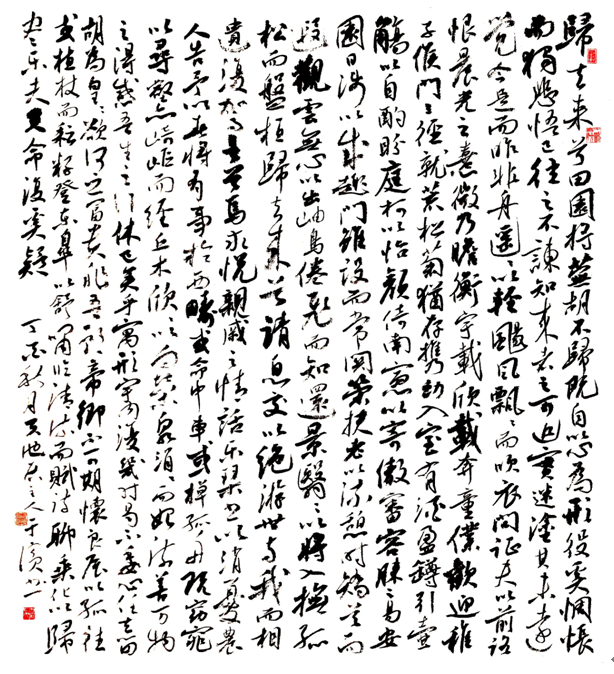 歸去來兮田園將蕪胡不歸既自以心為形役奚惆悵
而獨悲悟已往之不諫知來者之可追實迷途其未遠
覺今是而昨非舟遙以輕颺風飄飄而吹衣問征夫以前路
恨晨光之熹微乃瞻衡宇載欣載奔童僕歡迎稚
子候門三徑就荒松菊猶存携幼入室有酒盈罇引壺
觴以自酌眄庭柯以怡顏倚南窗以寄傲審容膝之易安
園日涉以成趣門雖設而常関策扶老以流憩時矯首而
遐觀雲無心以出岫鳥倦飛而知還景翳翳以將入撫孤
松而盤桓歸去來兮請息交以絕游世與我而相
遺復駕言兮焉求悅親戚之情話樂琴書以消憂農
人告予以春將有事於西疇或命巾車或棹孤舟既窈窕
以尋壑亦崎嶇而經丘木欣欣以向榮泉涓涓而始流善萬物
之得時感吾生之行休已矣乎寓形宇內復幾時曷不委心任去留
胡為皇皇欲何之富貴非吾願帝鄉不可期懷良辰以孤往
或植杖而耘耔登東皋以舒嘯臨清流而賦詩聊乘化以歸
盡樂夫天命復奚疑
丁酉秋月